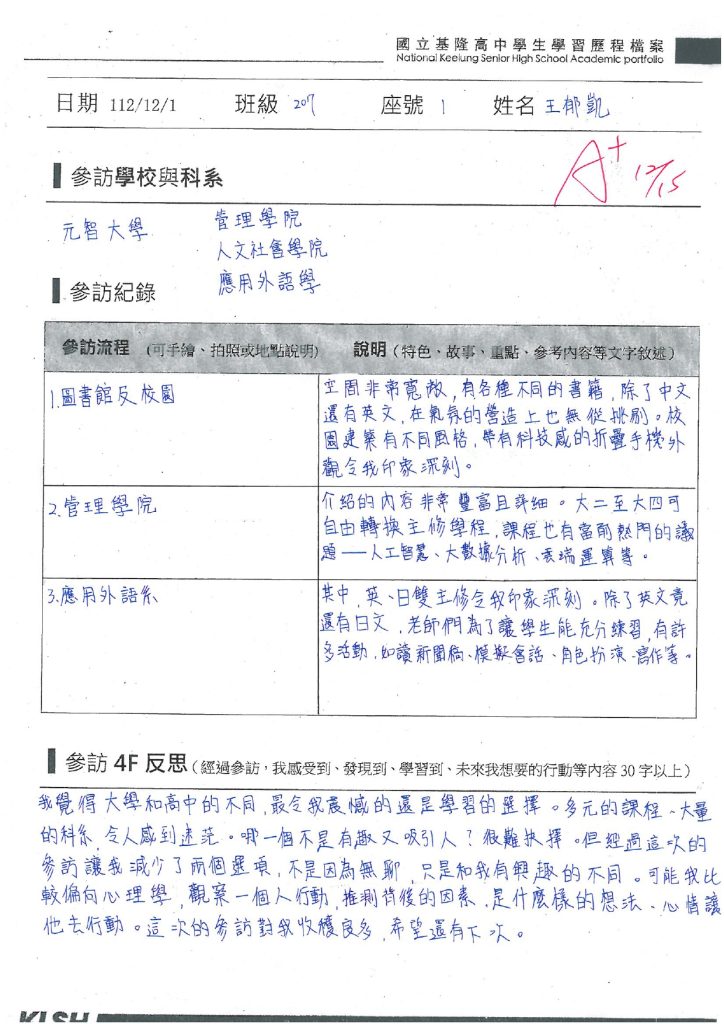 國立基隆高中學生學習歷程檔案
National Keelung Senior High School Academic portfolio
日期 112/12/1 班級 207 座號 1 姓名 王郁凱
A+ 12/15
參訪學校與科系
元智大學 管理學院
人文社會學院
應用外語學
參訪紀錄
參訪流程 (可手繪、拍照或地點說明) 說明(特色、故事、重點、參考內容等文字敘述)
1.圖書館及校園
空間非常寬敞,有各種不同的書籍,除了中文
還有英文,在氣氛的營造上也無從挑剔。校
園建築有不同風格,帶有科技感的折疊手機外
觀令我印象深刻。
2.管理學院
介紹的內容非常豐富且詳細。大二至大四可
自由轉換主修學程,課程也有當前熱門的議
題——人工智慧、大數據分析、雲端運算等。
3.應用外語系
其中,英、日雙主修令我印象深刻。除了英文竟
還有日文,老師們為了讓學生能充分練習,有許
多活動,如讀新聞稿、模擬會話、角色扮演、寫作等。
參訪 4F 反思(經過參訪,我感受到、發現到、學習到、未來我想要的行動等內容 30 字以上)
我覺得大學和高中的不同,最令我震憾的還是學習的選擇。多元的課程、大量
的科系,令人感到迷茫。哪一個不是有趣又吸引人?很難抉擇。但經過這次的
參訪讓我減少了兩個選項,不是因為無聊,只是和我有興趣的不同。可能我比
較偏向心理學,觀察一個人行動,推測背後的因素,是什麼樣的想法、心情讓
他去行動。這次的參訪對我收穫良多,希望還有下次。
KLSH